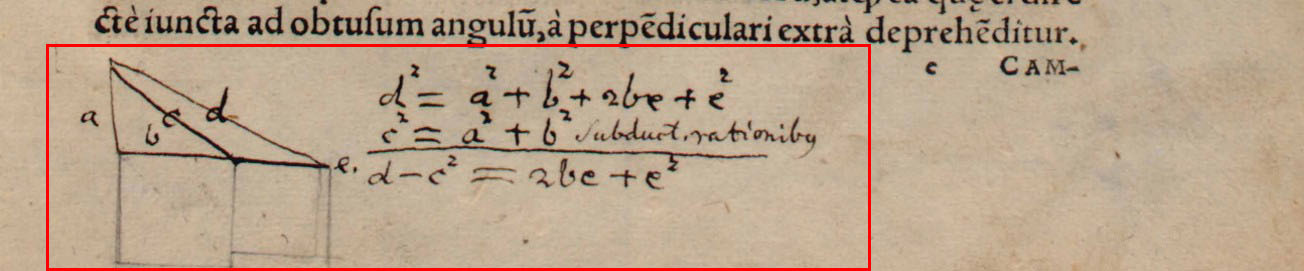 ctè iuncta ad obtusum angulū, à perpēdiculari extrà deprehēditur.
c CAM-
a b c d e.
d² = a² + b² + 2be + e²
c² = a² + b² subduct. rationibꝰ
d - c² = 2be + e²